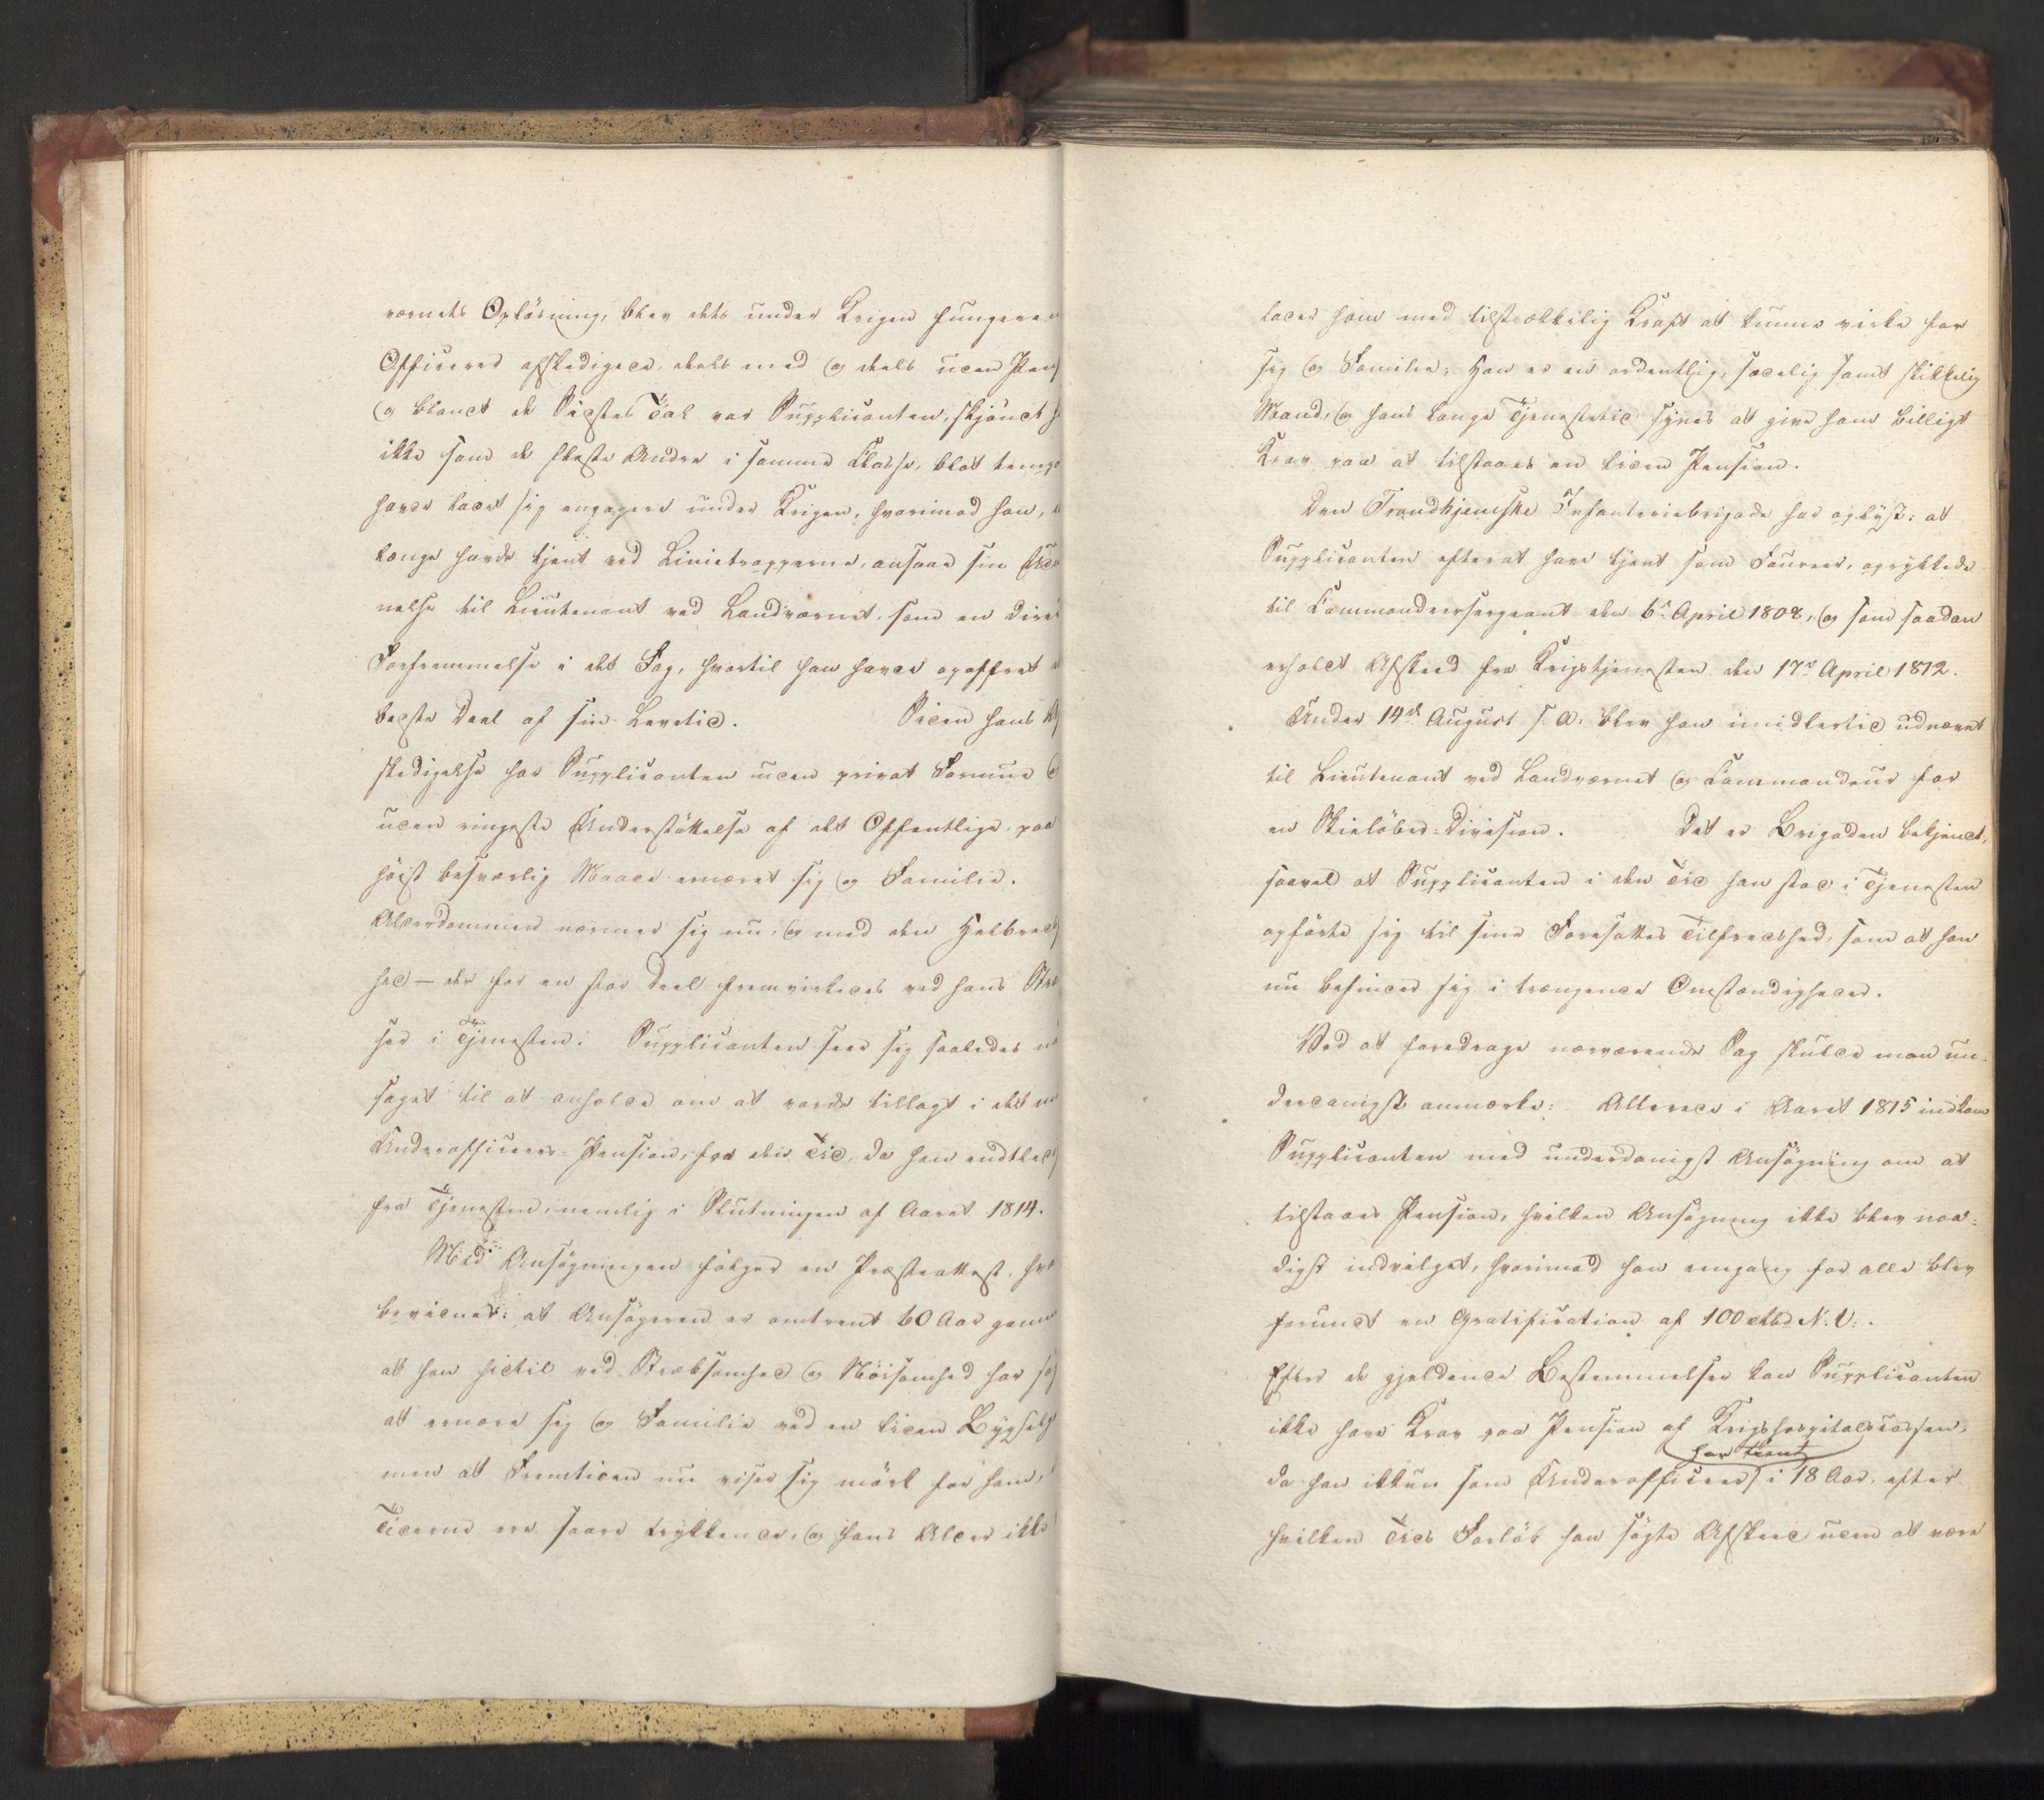 værnets Opløsning, blev dets under Krigen fungeren
Officerer afskedigede, deels med og deels uden Pens
og blandt de Sidstes Tal var Supplicanten, skjøndt h
ikke som de fleste Andre i samme Classe, blot temp
havde ladet sig engagere under Krigen, hvorimod han,
længe havde tjent ved Linietropperne, ansaae sin Ud
nelse til Lieutenant ved Landværnet, som en dire
Forfremmelse i det Fag, hvortil han havde opoffret
bedste Deel af sin Levetid. Siden hans Af
skedigelse har Supplicanten uden privat Formue
uden ringeste Understøttelse af det Offentlige, paa
høist besværlig Maade ernæret sig og Familie.
Alderdommen nærmer sig nu, og med den Helbreds
hed – der for en stor Deel fremvirkedes ved hans Stra
ser i Tjenesten. Supplicanten seer sig saaledes
saget til at anholde om at vorde tillagt i det
Underofficeers-Pension, fra den Tid, da han endtled
fra Tjenesten, nemlig i Slutningen af Aaret 1814.
Med Ansøgningen følger en Præsteattest, hvo
bevidner: at Ansøgeren er omtrent 60 Aar gam
at han hidtil ved Stræbsomhed og Nøisomhed har
at ernære sig og Familie ved en liden Bygsel
men at Fremtiden nu viser sig mørk for ham,
Tiderne ere saare trykkende, og hans Alder ikke
lader ham med tilstrækkelig Kraft at kunne virke for
sig og Familie; Han er en ordentlig, sædelig samt skikkelig
Mand, og hans lange Tjenestetid synes at give ham billigt
Krav paa at tilstaaes en liden Pension.
Den Trondhjemske Infanteriebrigade har oplyst: at
Supplicanten efterat have tjent som Foureer, oprykkede
til Commandeersergeant den 6te April 1808, og som saadan
erholdt Afsked fra Krigstjenesten den 17de April 1812.
Under 14de August s. A. blev han imidlertid udnævnt
til Lieutenant ved Landværnet og Commandeur for
en Skieløber-Division. Det er Brigaden bekjendt,
saavel at Supplicanten i den Tid han stod i Tjenesten
opførte sig til sine Foresattes Tilfredshed, som at han
nu befinder sig i trængende Omstændigheder.
Ved at foredrage nærværende Sag skulde man un-
derdanigst anmærke: Allerede i Aaret 1815 indkom
Supplicanten med underdanigst Ansøgning om at
tilstaaes Pension, hvilken Ansøgning ikke blev naa-
digst indvilget, hvorimod han engang for alle blev
forundt en Gratification af 100 Rbd N. V..
Efter de gjeldende Bestemmelser kan Supplicanten
ikke have Krav paa Pension af Krigshospitalscassen,
har tient
da han ikkun som Underofficeer i 18 Aar, efter
hvilken Tids Forløb han søgte Afskeed uden at være